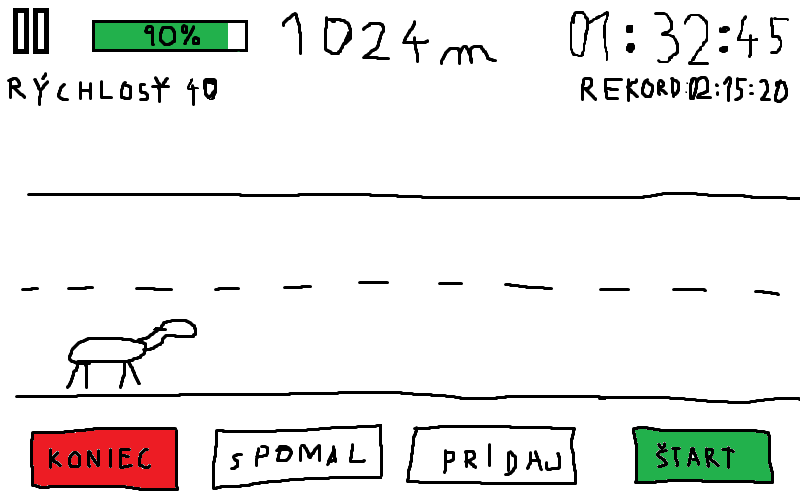 90% 1024m 01:32:45
RÝCHLOSŤ 40 REKORD:02:15:20
KONIEC SPOMAL PRIDAJ ŠTART